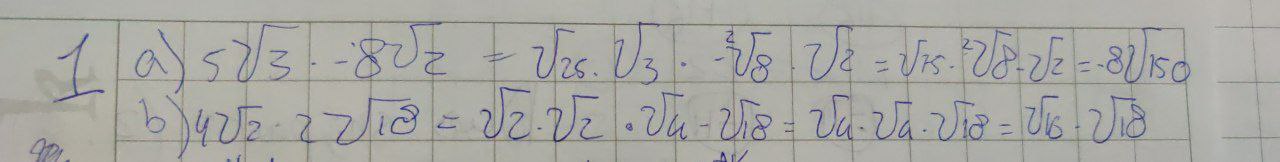 1 a) 5√3 · -8√2 = √25 · √3 · -²√8 · √2 = √75 · ²√8 - √2 = -8√150
b) 4√2 · 2√18 = √2 · √2 · √4 - √18 = √4 · √4 · √18 = √16 · √18